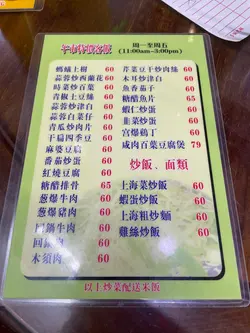 周一至周五
(11:00am-3:00pm)
螞蟻上樹 60
蒜蓉炒西蘭花 60
時菜炒百葉 60
青椒土豆絲 60
蒜蓉炒津白 60
蒜蓉白菜仔 60
青瓜炒肉片 60
干扁四季豆 60
麻婆豆腐 60
番茄炒蛋 60
紅燒豆腐 60
糖醋排骨 65
蔥爆牛肉 60
蔥爆豬肉 60
回鍋牛肉 60
回鍋肉 60
木須肉 60
芹菜豆干炒肉絲 60
木耳炒津白 60
魚香茄子 60
糖醋魚片 65
蝦仁炒蛋 60
韭菜炒蛋 60
宮爆鷄丁 60
咸肉百葉豆腐煲 79
炒飯、面類
上海菜炒飯 60
蝦蛋炒飯 60
上海粗炒麵 60
雞絲炒飯 60
以上炒菜配送米飯